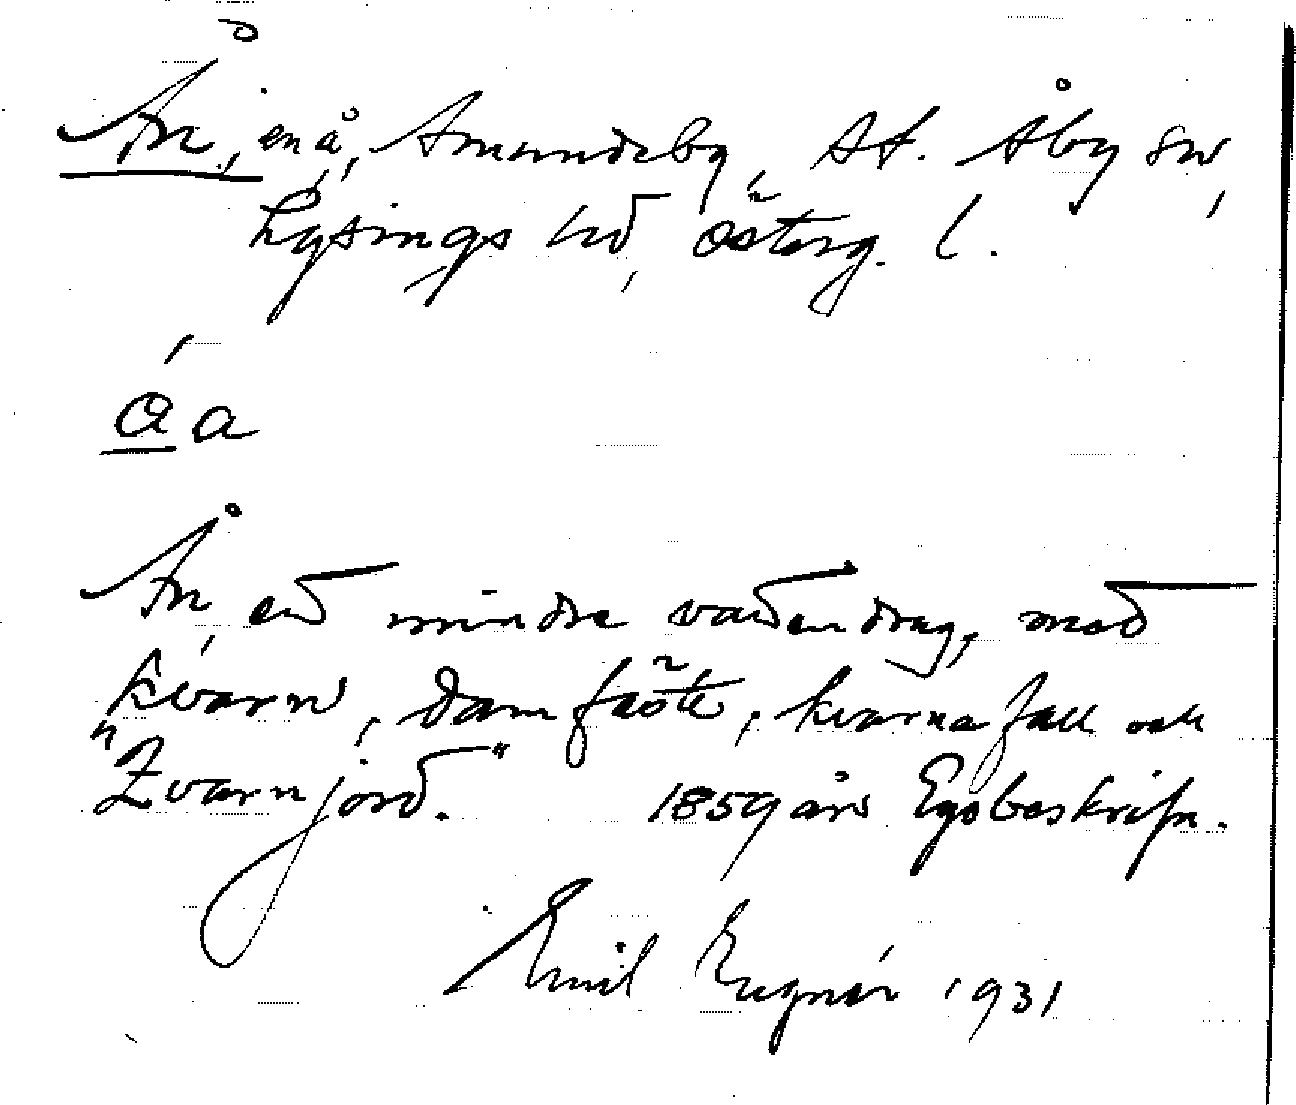 Ån, en å, Amundeby, St. Åby sn,
Lysings hd, Österg. l.
á̱ a
Ån, ett mindre vattendrag, med
kvarn, damfäste, kvarnafall och
"Qvarnjord." 1859 års Egobeskrifn.
Emil 1931